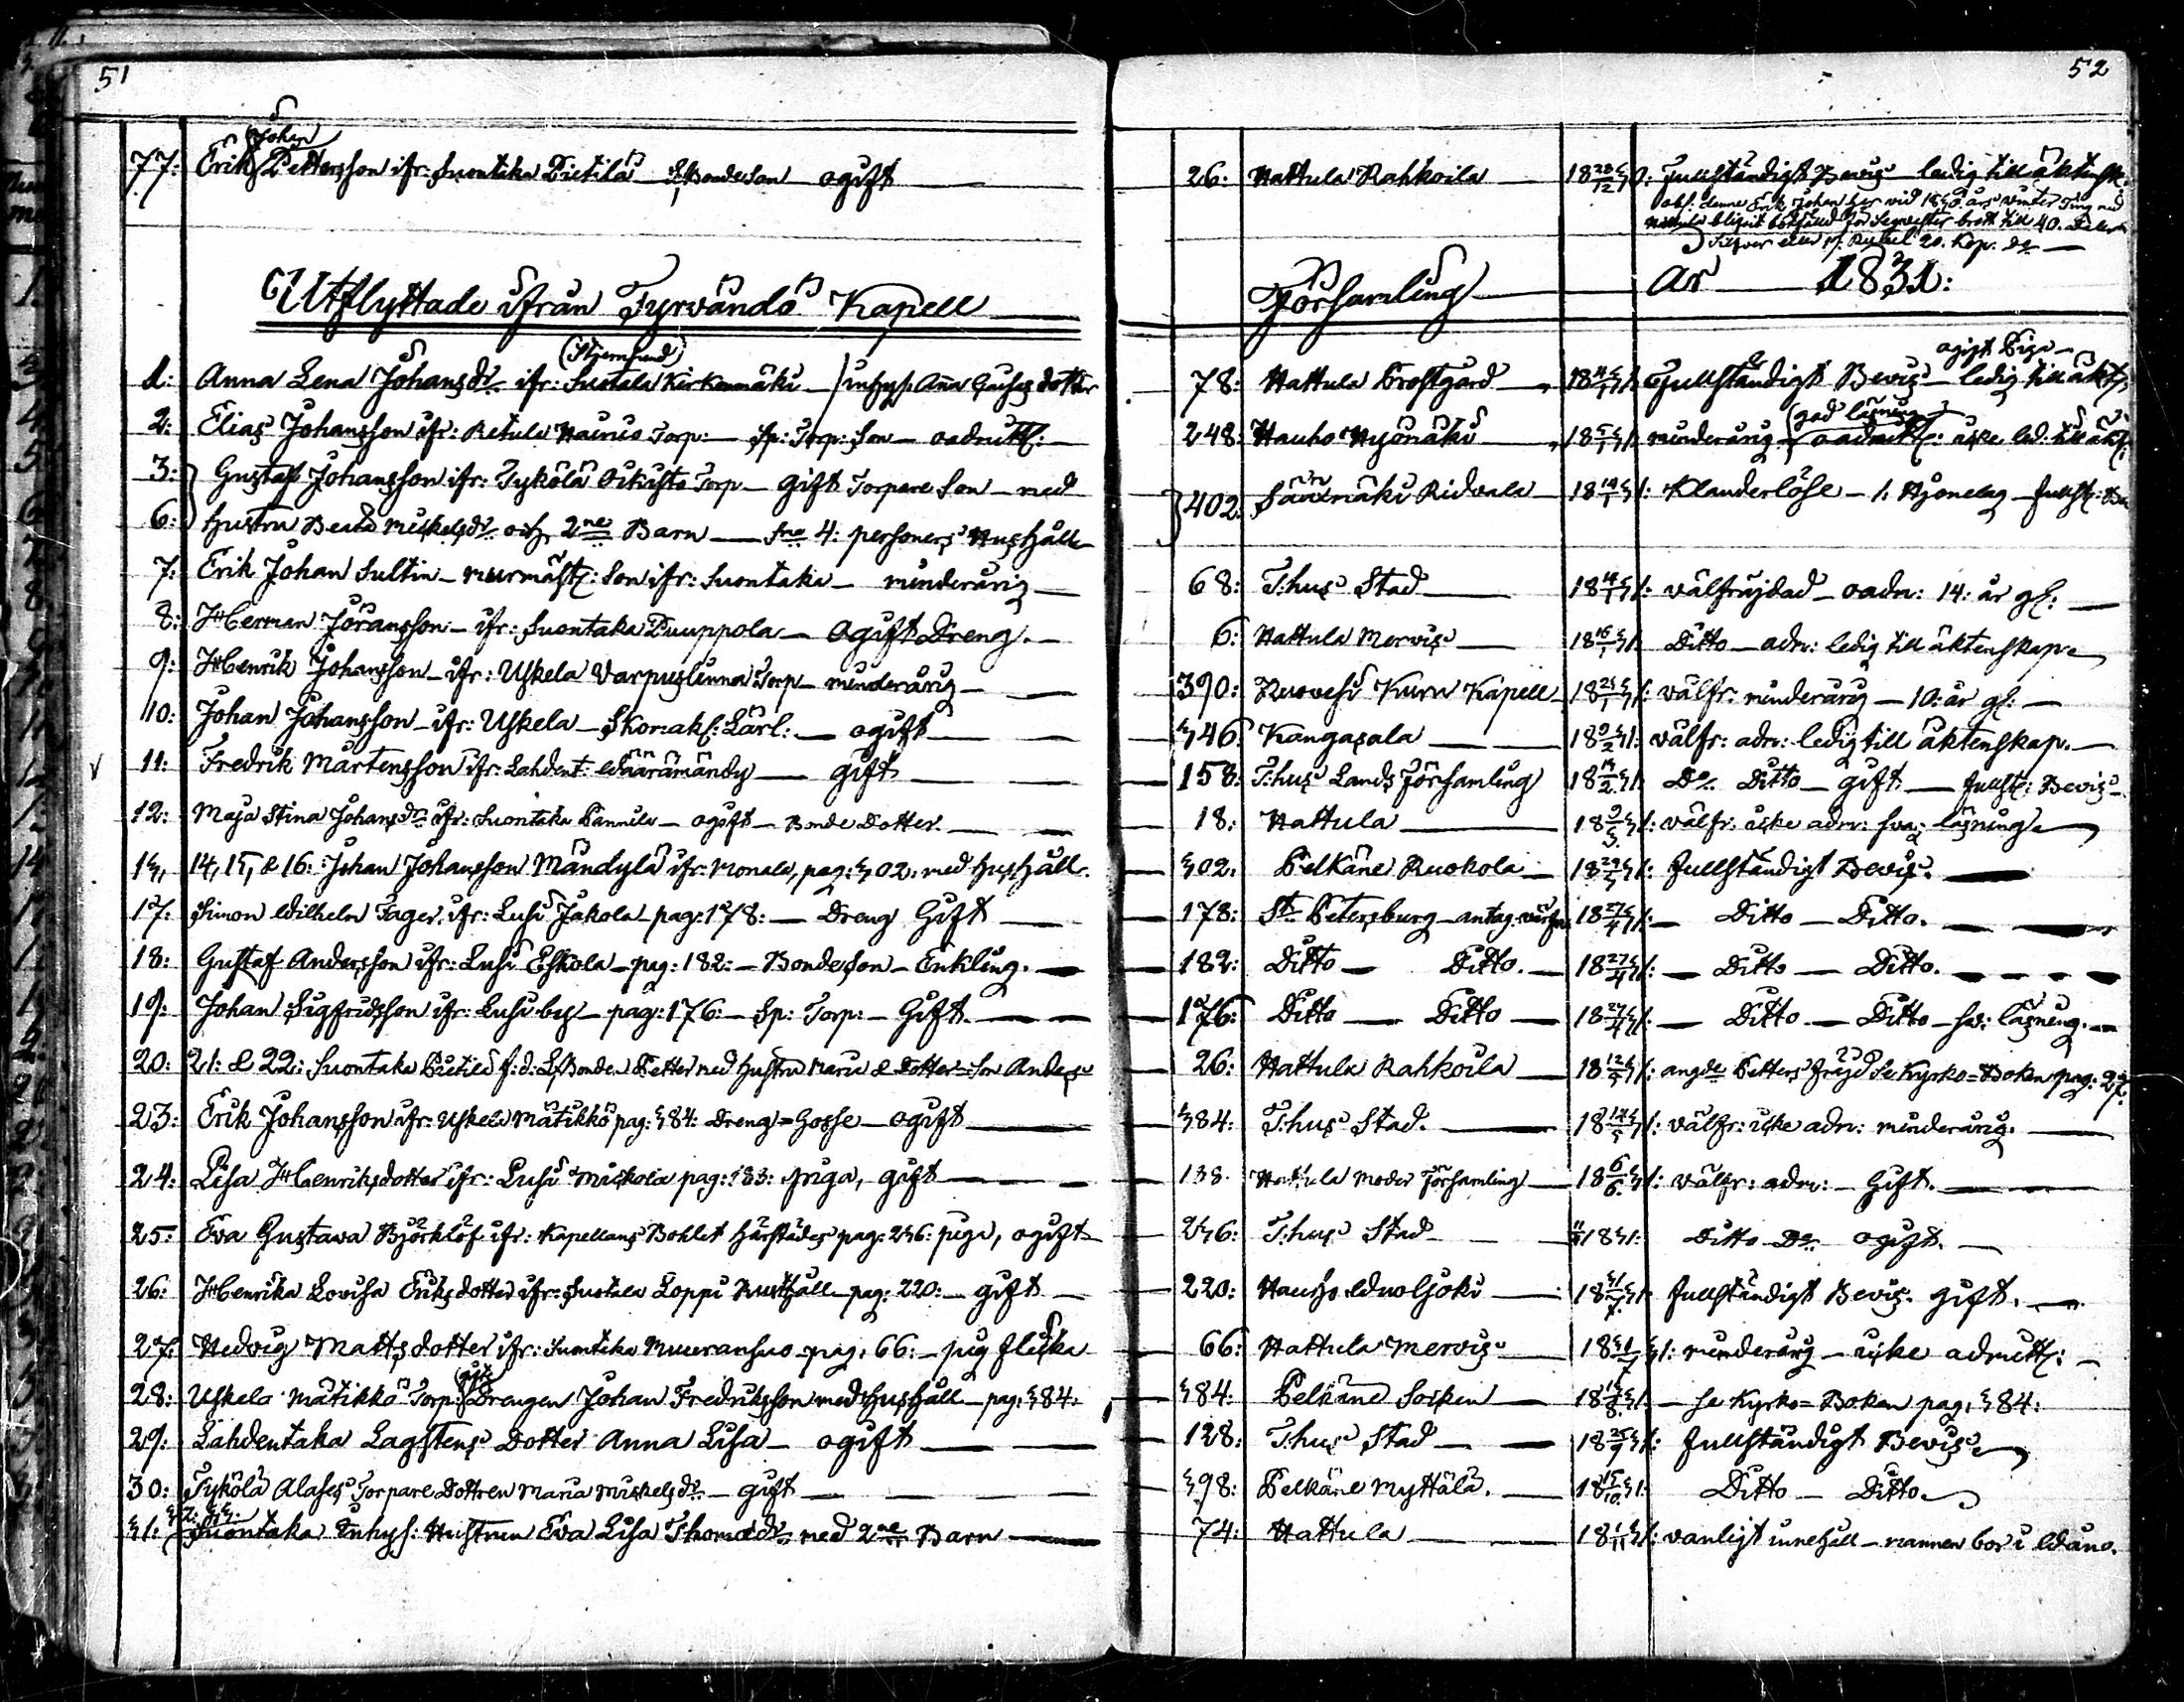 51
52
77: Erik Johan Pettersson ifr: Suontaka Pietilä Bondeson ogift
26: Hattula Rahkoila 18 28/12 30: Fullständigt Bevis ledig till äktensk:
obs: denne Erik Johan har vid 1830 års winter Ting med
blifvit bötfälld för brott till 40. Daler
Silfver eller 19. Rubel 20. Kop. Sr
Utflyttade ifrån Tyrvändö Kapell Församling år 1831:
1: Anna Lena Johansdr ifr: Suotala Kirkonmäki (Stjernsund) inhys: Anna dotter
78: Hattula Prostgård 18 4/1 31: Fullständigt Bevis ledig till äkt: ogift Piga
2: Elias Johansson ifr: Retula Torp: Sp: Torp: Son oadmitt:
248: Hauho Hyömäki 18 5/1 31: minderårig god läsning oadmitt: icke led. till äkt:
3: Gustaf Johansson ifr: Tykölä Torp gift Torpare Son med
6: hustru Beata Mickelsdr och 2ne Barn 4: personers Hushåll
402: Sääxmäki Ridvala 18 14/1 31: Klanderlöse i Hjonelag fullst: Be
7: Erik Johan Sultin murmäst: Son ifr: Suontaka minderårig
68: T:hus Stad 18 14/1 31: välfräjdad oadm: 14: år gl:
8: Herman Göransson ifr: Suontaka Puuppola ogift Dreng.
6: Hattula Mervis 18 16/1 31: Ditto adm: ledig till äktenskap
9: Henrik Johansson ifr: Uskela Varpuslinna Torp minderårig
390: Ruovesi Kuru Kapell 18 25/1 31: välfr: minderårig 10: år gl:
10: Johan Johansson ifr: Uskela Skomak: Lärl: ogift
346: Kangasala 18 9/2 31: välfr: adm: ledig till äktenskap.
11: Fredrik Mårtensson ifr: Lahdent: Wäärämändy gift
158: T:hus Lands Församling 18 /2 31: Do Ditto gift fullst: Bevis
12: Maja Stina Johansdr ifr: Suontaka Pannula ogift Bonde Dotter.
18: Hattula 18 9/3 31: välfr: icke adm: svag läsning
13, 14, 15, & 16: Johan Johansson Mändylä ifr: Monala, pag: 302: med hushåll.
302: Pelkäne Ruokola 18 29/3 31: fullständigt Bevis.
17: Simon Wilhelm Fager, ifr: Lusi Jakola pag: 178: Dreng Gift
178: St Petersburg antag: värfn: 18 27/4 31: Ditto Ditto.
18: Gustaf Andersson ifr: Lusi Eskola pag: 182: Bondeson Enkling.
182: Ditto Ditto. 18 27/4 31: Ditto Ditto.
19: Johan Sigfridsson ifr: Lusi by pag: 176: Sp: Torp: Gift.
176: Ditto Ditto 18 27/4 31: Ditto Ditto sv: läsning.
20: 21: & 22: Suontaka Pietilä f:d: Bonden Petter med hustru Maria & Dotter Son Anders
26: Hattula Rahkoila 18 12/5 31: angde Petters frejd se Kyrko=Boken pag: 27.
23: Erik Johansson ifr: Uskela Mätikkö pag: 384: Dreng=Gosse ogift
384: T:hus Stad. 18 14/5 31: välfr: icke adm: minderårig.
24: Lisa Henriksdotter ifr: Lusi Mickola pag: 183: piga, gift
138. Hattula Moder Församling 18 6/6 31: välfr: adm: Gift.
25: Eva Gustava Björklöf ifr: Kapellans Bohlet härstädes pag: 246: piga, ogift
246: T:hus Stad 1831: Ditto Do ogift.
26: Henrika Lovisa Eriksdotter ifr: Suotala Loppi Rusthåll pag: 220: gift
220: Hauho Wuoljoki 18 31/7 31: fullständigt Bevis. gift.
27: Hedvig Mattsdotter ifr: Suontaka Muuransuo pag: 66: pig flicka
66: Hattula Mervis 18 31/7 31: minderårig icke admitt:
28: Uskela Mätikkö Torp: gifte Drengen Johan Fredriksson med Hushåll pag: 384:
384: Pelkäne Socken 18 /8 31: se Kyrko=Boken pag: 384:
29: Lahdentaka Lagstens Dotter Anna Lisa ogift
128: T:hus Stad 18 25/9 31: fullständigt Bevis
30: Tykölä Torpare Dottren Maria Mickelsdr gift
398: Pelkäne Myttälä. 18 15/10 31: Ditto Ditto
31: 32: 33: Suontaka Inhys: Hustrun Eva Lisa Thomædr med 2ne Barn
74: Hattula 18 1/11 31: vanligt innehåll mannen bor i Wåno.